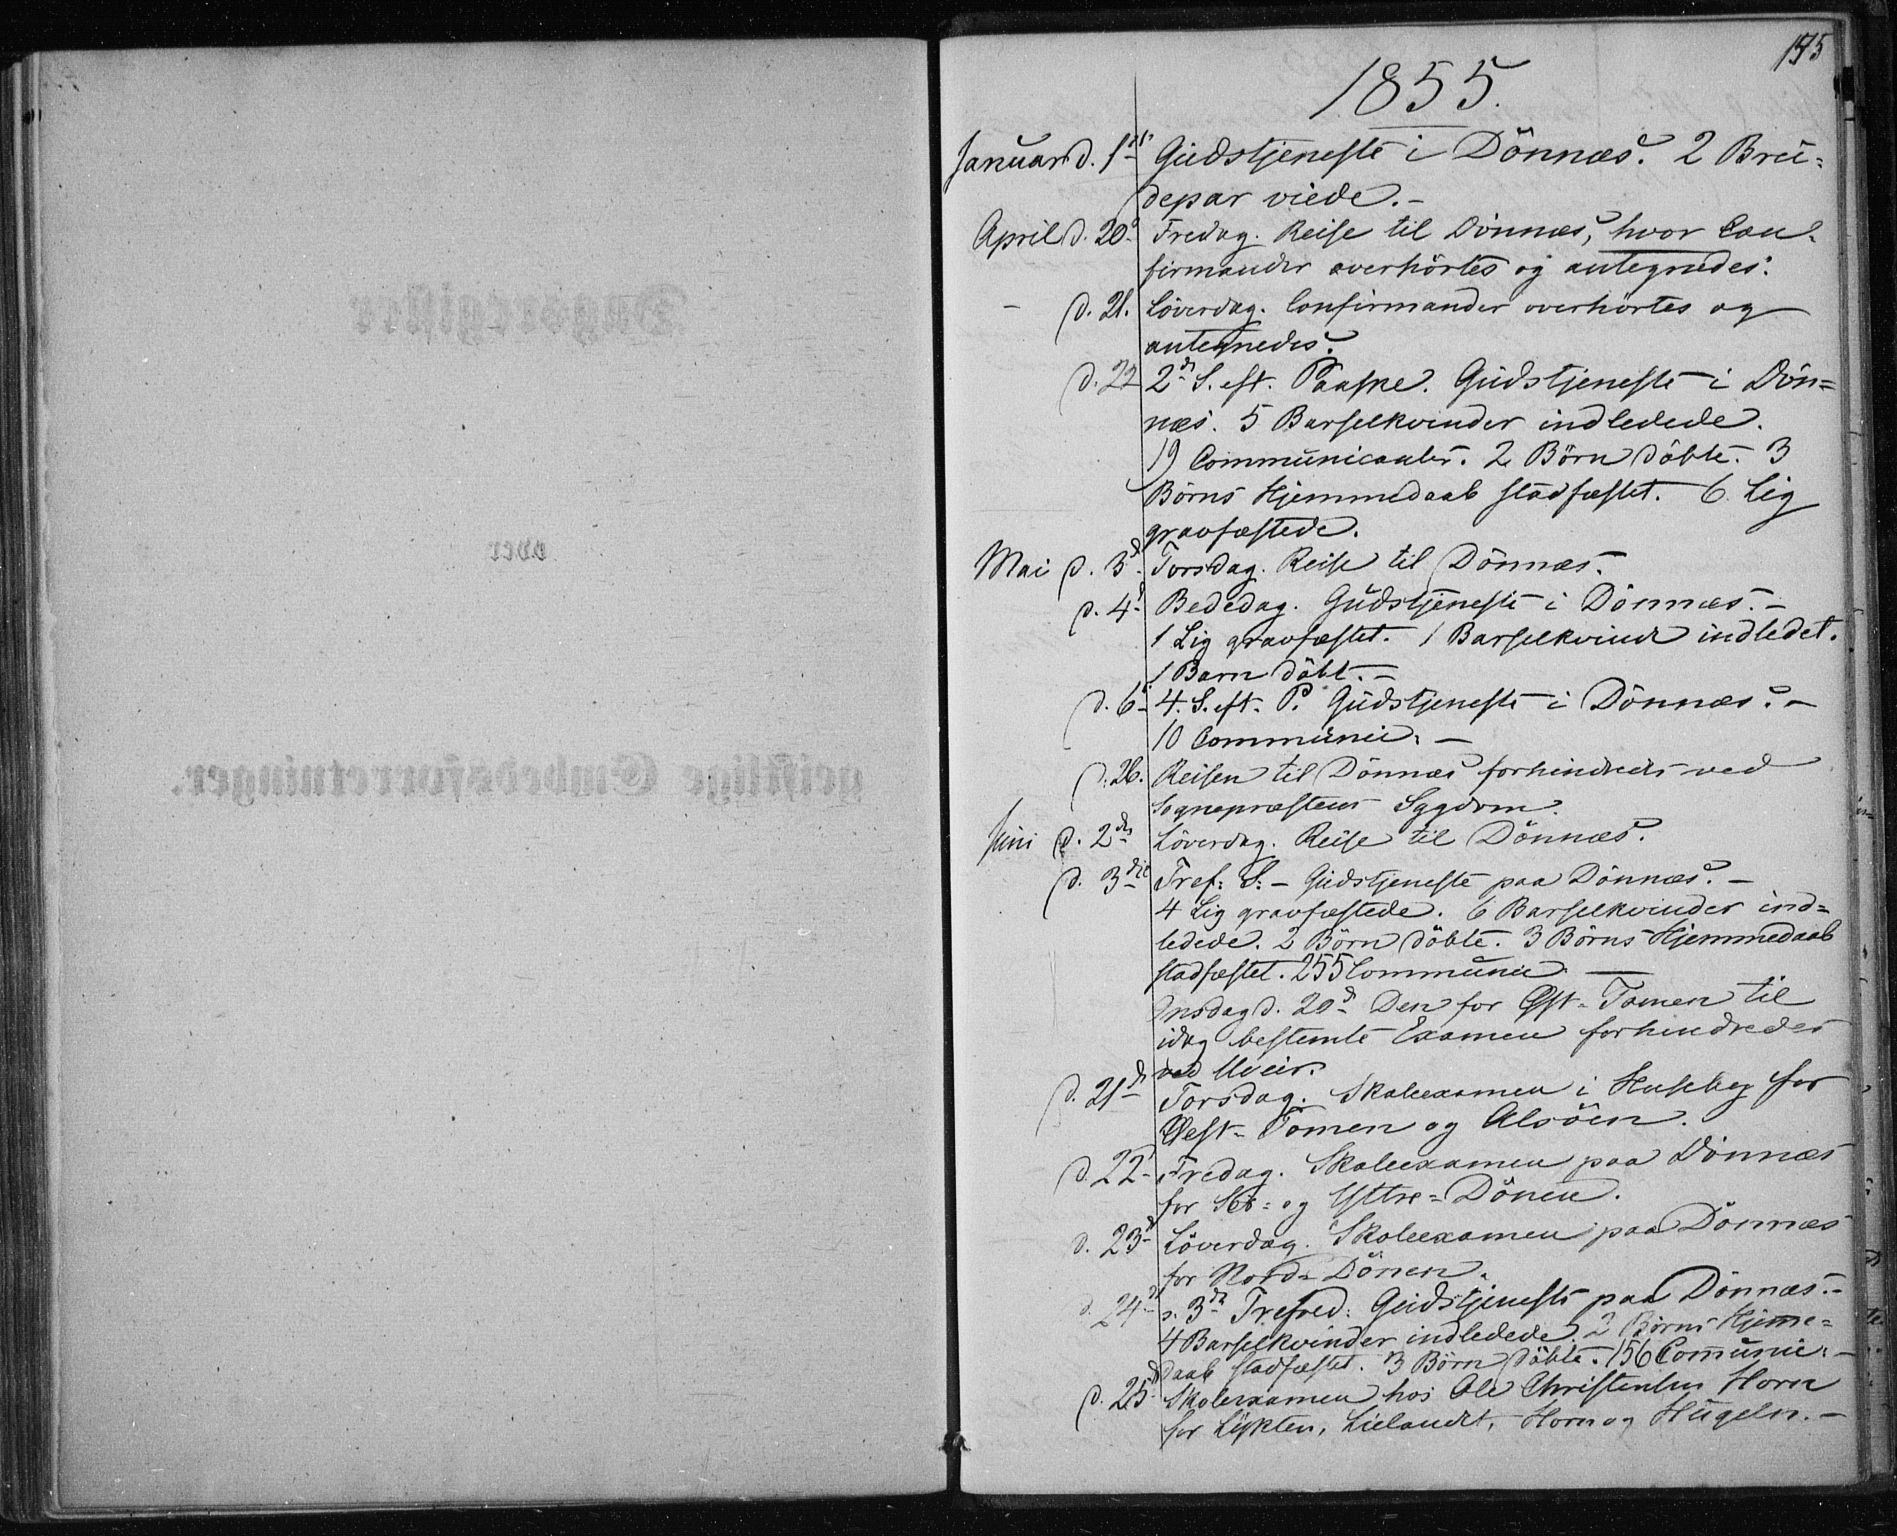 155
1855.
Januar d. 1ste Gudstjeneste i Dönnæs. 2 Bru-
depar viede. -
April d. 20d Fredag. Reise til Dönnæs, hvor Con-
firmander overhörtes og antegnedes.
- d. 21. Löverdag. Confirmander overhörtes og
antegnedes.
d. 22 2den S. eft. Paaske. Gudstjeneste i Dön=
næs. 5 Barselkvinder indledede.
19 Communicanter. 2 Börn döbte. 3
Börns Hjemmedaab stadfæstet. 6 Lig
gravfæstede.
Mai d. 3d. Torsdag. Reise til Dönnæs.
d. 4d Bededag. Gudstjeneste i Dönnæs. -
1 Lig gravfæstet. 1 Barselkvinde indledet.
1 Barn döbt. -
d. 6d 4. S. eft. P. Gudstjeneste i Dönnæs. -
10 Communic. -
d. 26. Reisen til Dönnæs forhindredes ved
Sognepræstens Sygdom.
Juni d. 2den Löverdag. Reise til Dönnæs.
d. 3die Tref: S: - Gudstjeneste paa Dönnæs. -
4 Lig gravfæstede. 6 Barselkvinder ind=
ledede. 2 Börn döbte. 3 Börns Hjemmedaab
stadfæstet. 255 Communic. -
Onsdag d. 20d Den for Øst-Tomen til
idag bestemte Examen forhindredes
ved Uveir.
d. 21d Torsdag. Skoleexamen i Huseby for
Øst-Tomen og Alsöen.
d. 22d Fredag. Skoleexamen paa Dönnæs
for og Yttre=Dönen.
d. 23d Löverdag. Skoleexamen paa Dönnæs
for Nord=Dönen.
d. 24d s. 3die Trefred: Gudstjeneste paa Dönnæs. -
4 Barselkvinder indledede. 2 Börns Hjemme=
daab stadfæstet. 3 Börn döbte. 156 Communic: -
d. 25d Skoleexamen hos Ole Christensen Horn
for Lökten, Lielandet, Horn og Hugeln. -
Dagsregister
over
geistlige Embedsforretninger.